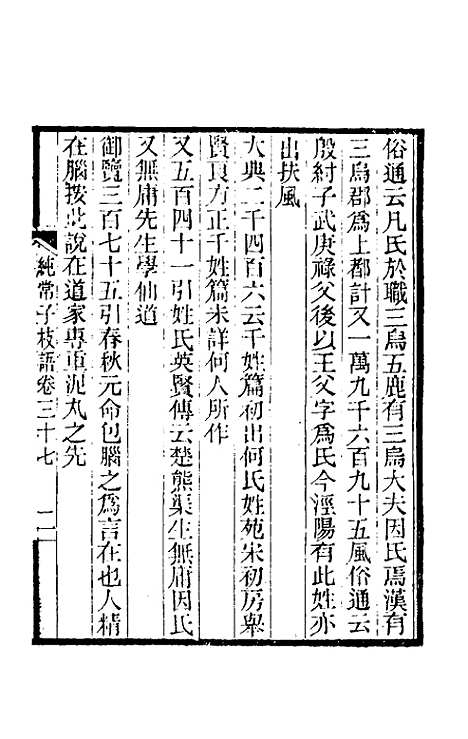 俗通云凡氏於職三烏五鹿有三烏大夫因氏焉漢有
三烏郡為上都計又一萬九千六百九十五風俗通云
殷紂子武庚祿父後以王父字為氏今涇陽有此姓亦
出扶風
大典二千四百六云千姓篇初出何氏姓苑宋初房舉
賢良方正千姓篇未詳何人所作
又五百四十一引姓氏英賢傳云楚熊渠生無庸因氏
又無庸先生學仙道
御覽三百七十五引春秋元命包腦之為言在也人精
在腦按此說在道家專重泥丸之先
純常子枝語卷三十七
二